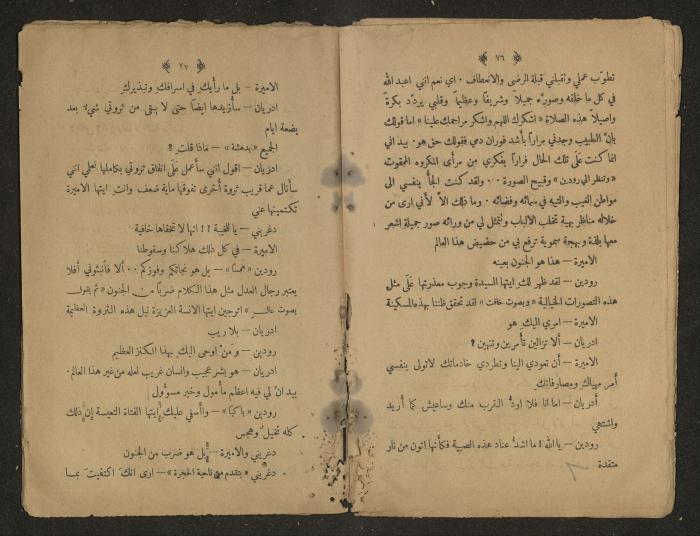 ﴿ ٧٦ ﴾
تطوّب عملي واقبلني قبلة الرضى والانعطاف . اي نعم انني اعبد الله
في كل ما خلقه وصوره جميلاً وشريفاً وعظيماً وقلبي يردّد بكرة
واصيلاً هذه الصلاة « اشكرك اللهم واشكر مراحمك علينا » اما قولك
بانّ الطبيب وجدني مراراً بأشد فوران دمي فقولك حق هو . بيد اني
انما كنت على تلك الحال فراراً بفكري من مرأى المكروه الممقوت
« وتنظر الى رودين » وقبيح الصورة . . ولقد كنت الجأ بنفسي الى
مواطن الغيب والتيه في سمائه وفضائه . وما ذلك الا لأني ارى من
خلاله مناظر بهية تخلب الالباب وتتمثل لي من ورائه صور جميلة اشعر
معها بلذة وبهجة سموية ترفع بي من حضيض هذا العالم
الاميرة — هذا هو الجنون بعينه
رودين — لقد ظهر لك ايتها السيدة وجوب معذرتها على مثل
هذه التصورات الخيالية « وبصوت خافت » لقد تحقق ظننا بهذه المسكينة
الاميرة — امري اليك هو
ادريان — ألا تزالين تأمرين وتنهين ؟
الاميرة — أن تعودي الينا وتطردي خادماتك لاتولى بنفسي
أمر مهامك ومصارفاتك
أدريان — اما انا فلا اودّ القرب منك وساعيش كما أريد
واشتهي
رودين — يا الله ! ما اشدّ عناد هذه الصبية فكأنها اتون من نار
متقدة
﴿ ٧٧ ﴾
الاميرة — بل ما رأيك في اسرافك وتبذيرك
ادريان — سأزيدها ايضاً حتى لا يبقى من ثروتي شيء بعد
بضعة ايام
الجميع « بدهشة » — ماذا قلتِ ؟
ادريان — اقول انني سأعمل على انفاق ثروتي بكاملها لعلي انني
سأنال عما قريب ثروة أخرى تفوقها ماية ضعف وانتِ ايتها الاميرة
تكتمينها عني
دغريني — يا للخيبة !! انها لا تخفاها خافية
الاميرة — في كل ذلك هلاكنا وسقوطنا
رودين « همساً » — بل هو نجاتكم وفوزكم . . ألا فأنبئوني أفلا
يعتبر رجال العدل مثل هذا الكلام ضرباً من الجنون « ثم يقول
بصوت عالٍ » اترجين ايتها الانسة العزيزة نيل هذه الثروة العظيمة
ادريان — بلا ريب
رودين — ومَن اوحى اليك بهذا الكنز العظيم
ادريان — هو بشر عجيب وانسان غريب لعله من غير هذا العالم .
بيد انّ لي فيه اعظم مأمول وخير مسؤول
رودين « باكياً » — واأسفي عليكِ ايتها الفتاة التعيسة إن ذلك
كله تخيل وهجس
دغريني والاميرة — بل هو ضرب من الجنون
دغريني « يتقدم من ناحية الحجرة » — ارى انك اكتفيت بما